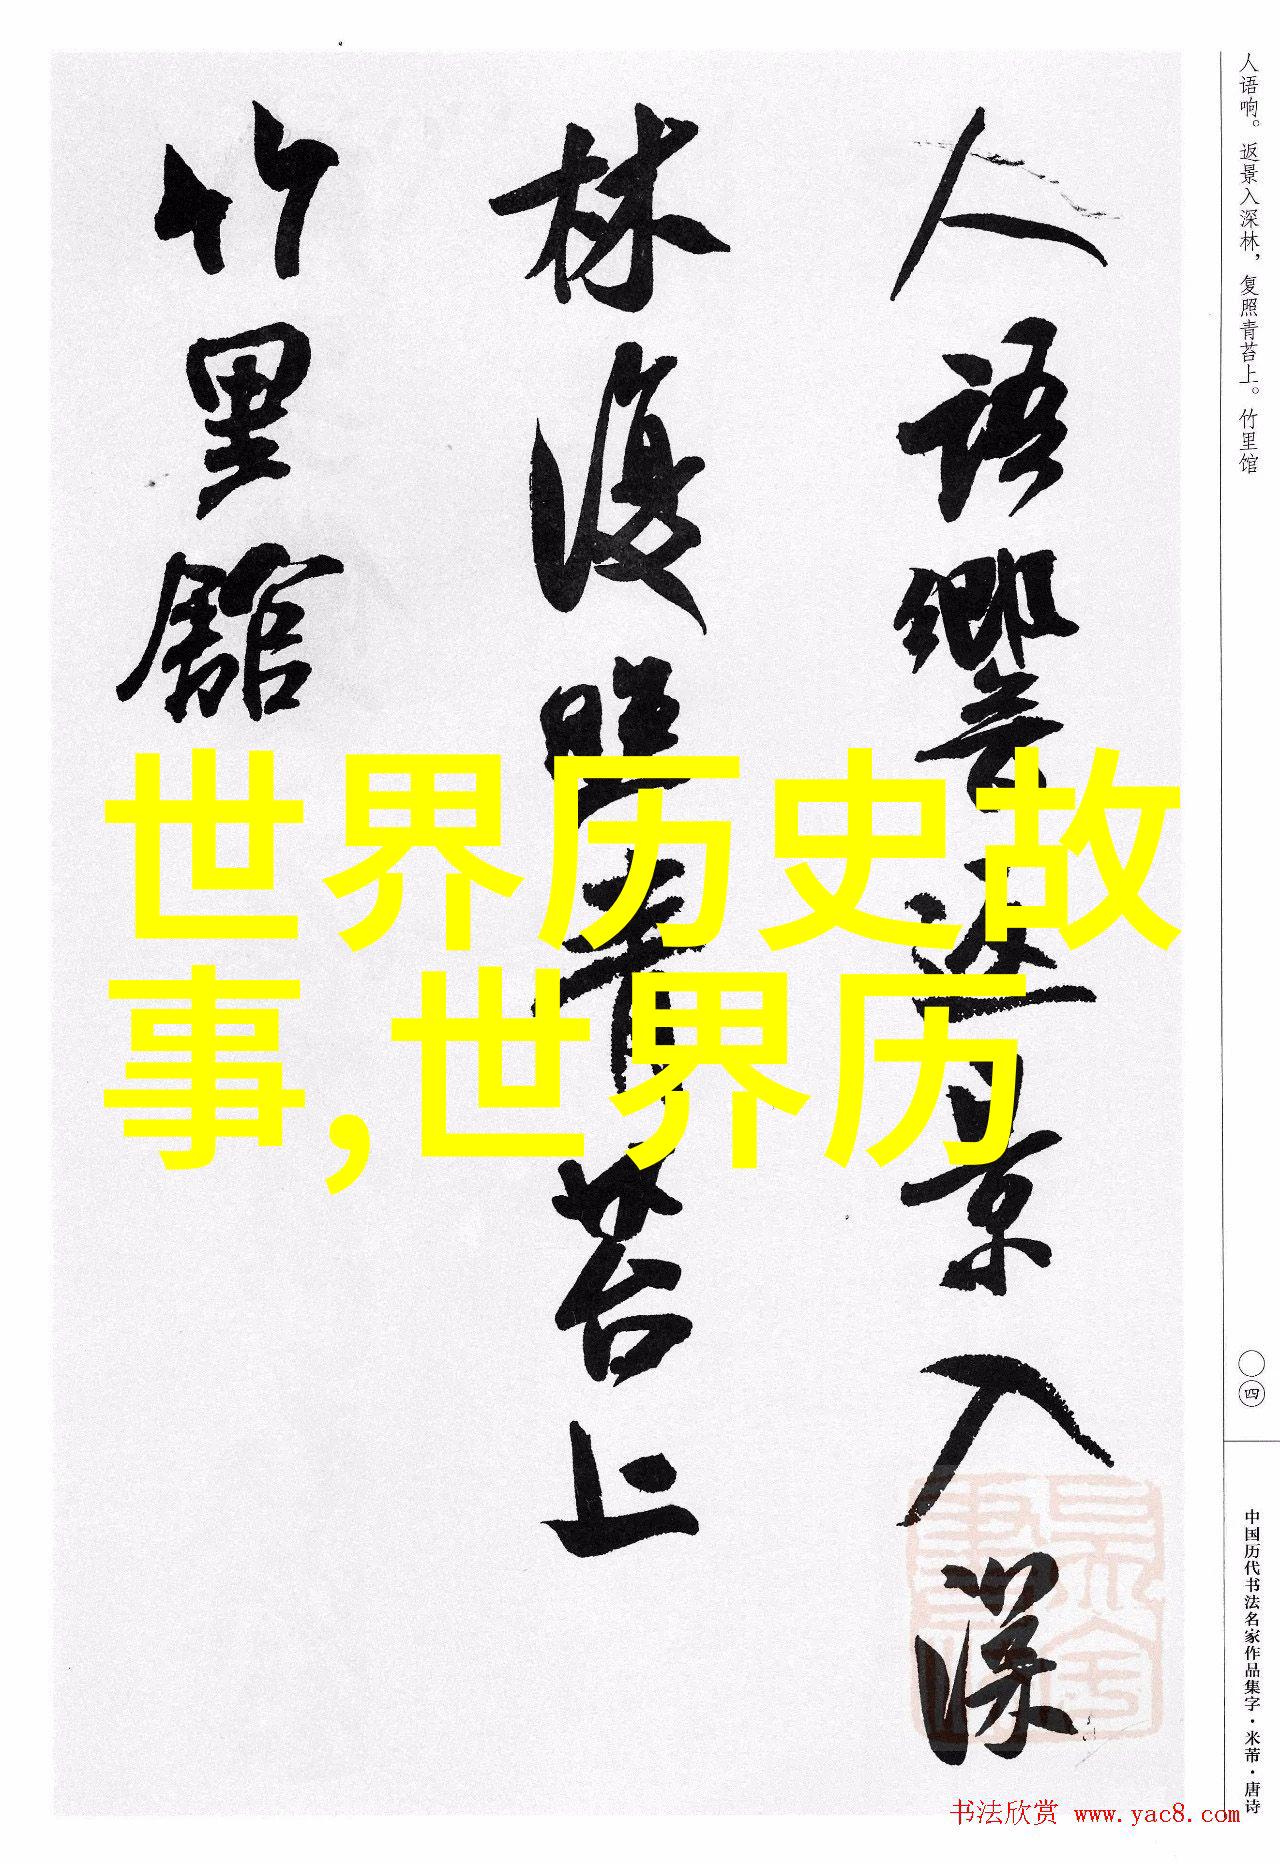 人语响。返景入深林，复照青苔上。竹里馆
人語響返景入深
林復照青苔上
竹里館
世界历史故
事,世界历
〇四
中国历代书法名家作品集字·米芾·唐诗
书法欣赏 www.yac8.com